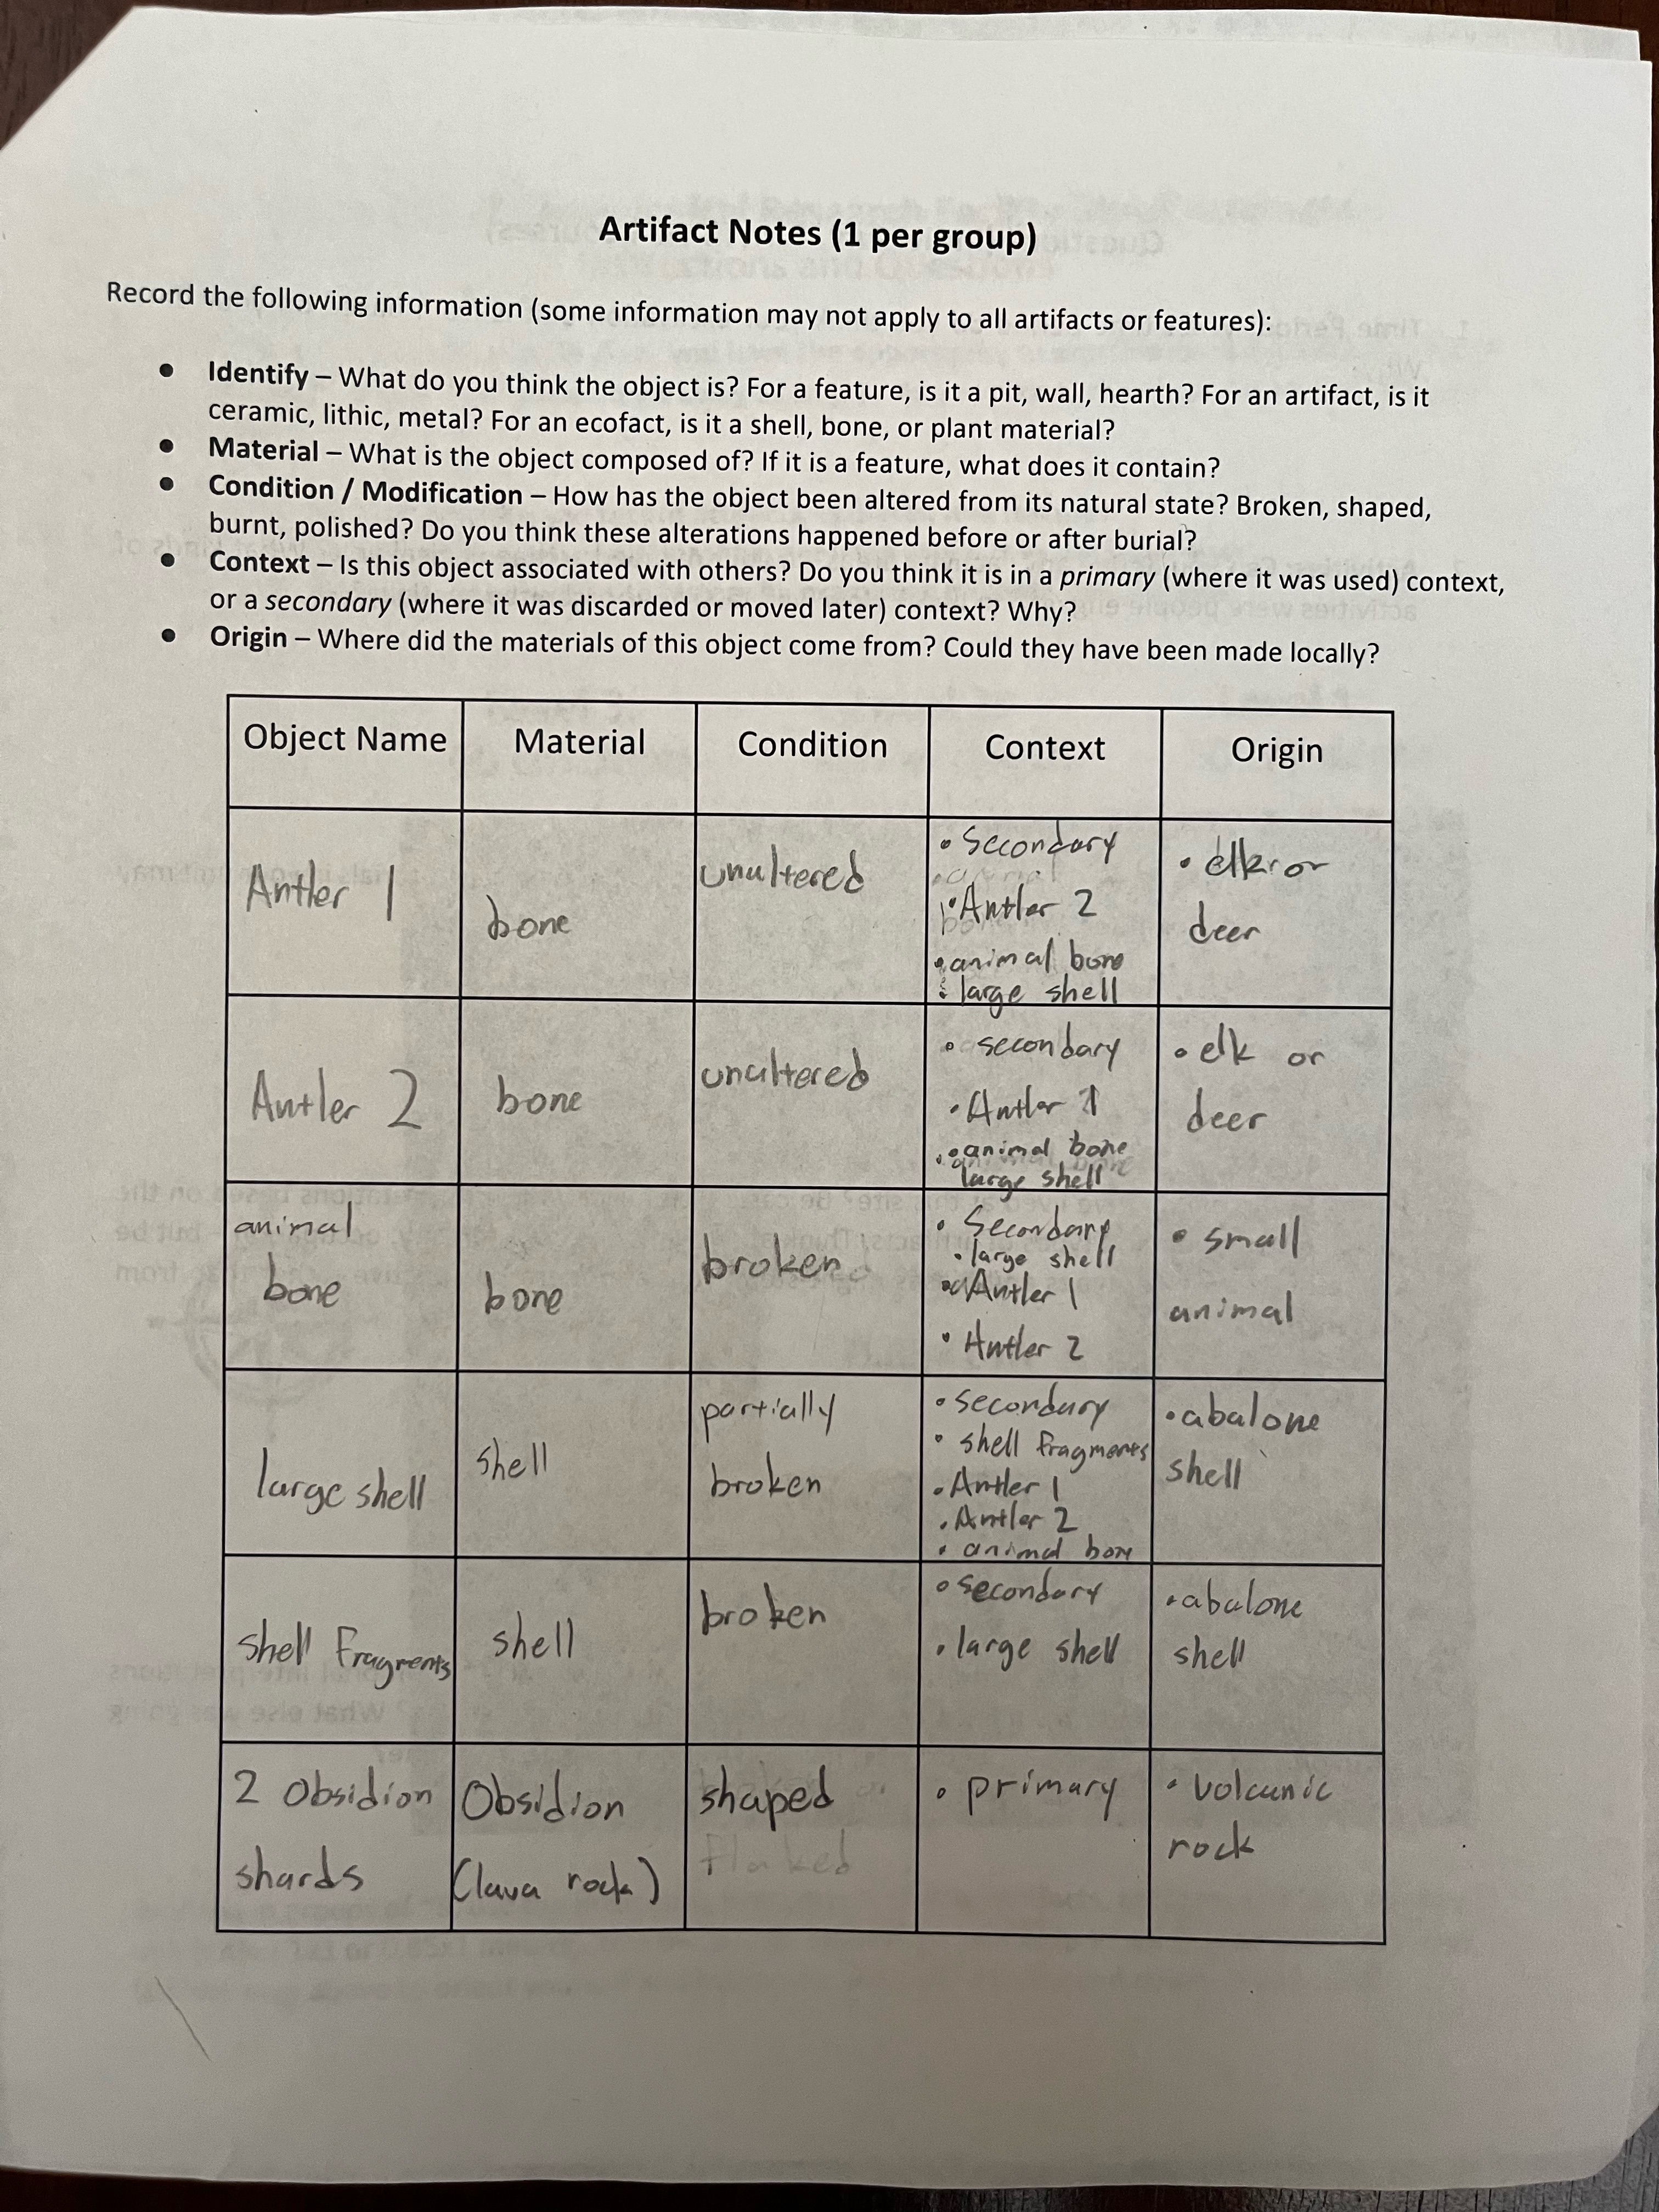 Artifact Notes (1 per group)
Record the following information (some information may not apply to all artifacts or features):
• Identify – What do you think the object is? For a feature, is it a pit, wall, hearth? For an artifact, is it
ceramic, lithic, metal? For an ecofact, is it a shell, bone, or plant material?
• Material – What is the object composed of? If it is a feature, what does it contain?
• Condition / Modification – How has the object been altered from its natural state? Broken, shaped,
burnt, polished? Do you think these alterations happened before or after burial?
• Context – Is this object associated with others? Do you think it is in a primary (where it was used) context,
or a secondary (where it was discarded or moved later) context? Why?
• Origin – Where did the materials of this object come from? Could they have been made locally?
Object Name
Material
Condition
Context
Origin
Antler 1
bone
unaltered
• Secondary
• Antler 2
• animal bone
• large shell
• elk or
deer
Antler 2
bone
unaltered
• secondary
• Antler 1
• animal bone
large shell
• elk or
deer
animal
bone
bone
broken
• Secondary
• large shell
• Antler 1
• Antler 2
• small
animal
large shell
shell
partially
broken
• secondary
• shell fragments
• Antler 1
• Antler 2
• animal bone
• abalone
shell
shell Fragments
shell
broken
• secondary
• large shell
• abalone
shell
2 Obsidion
shards
Obsidion
(lava rock)
shaped
flaked
• primary
• volcanic
rock